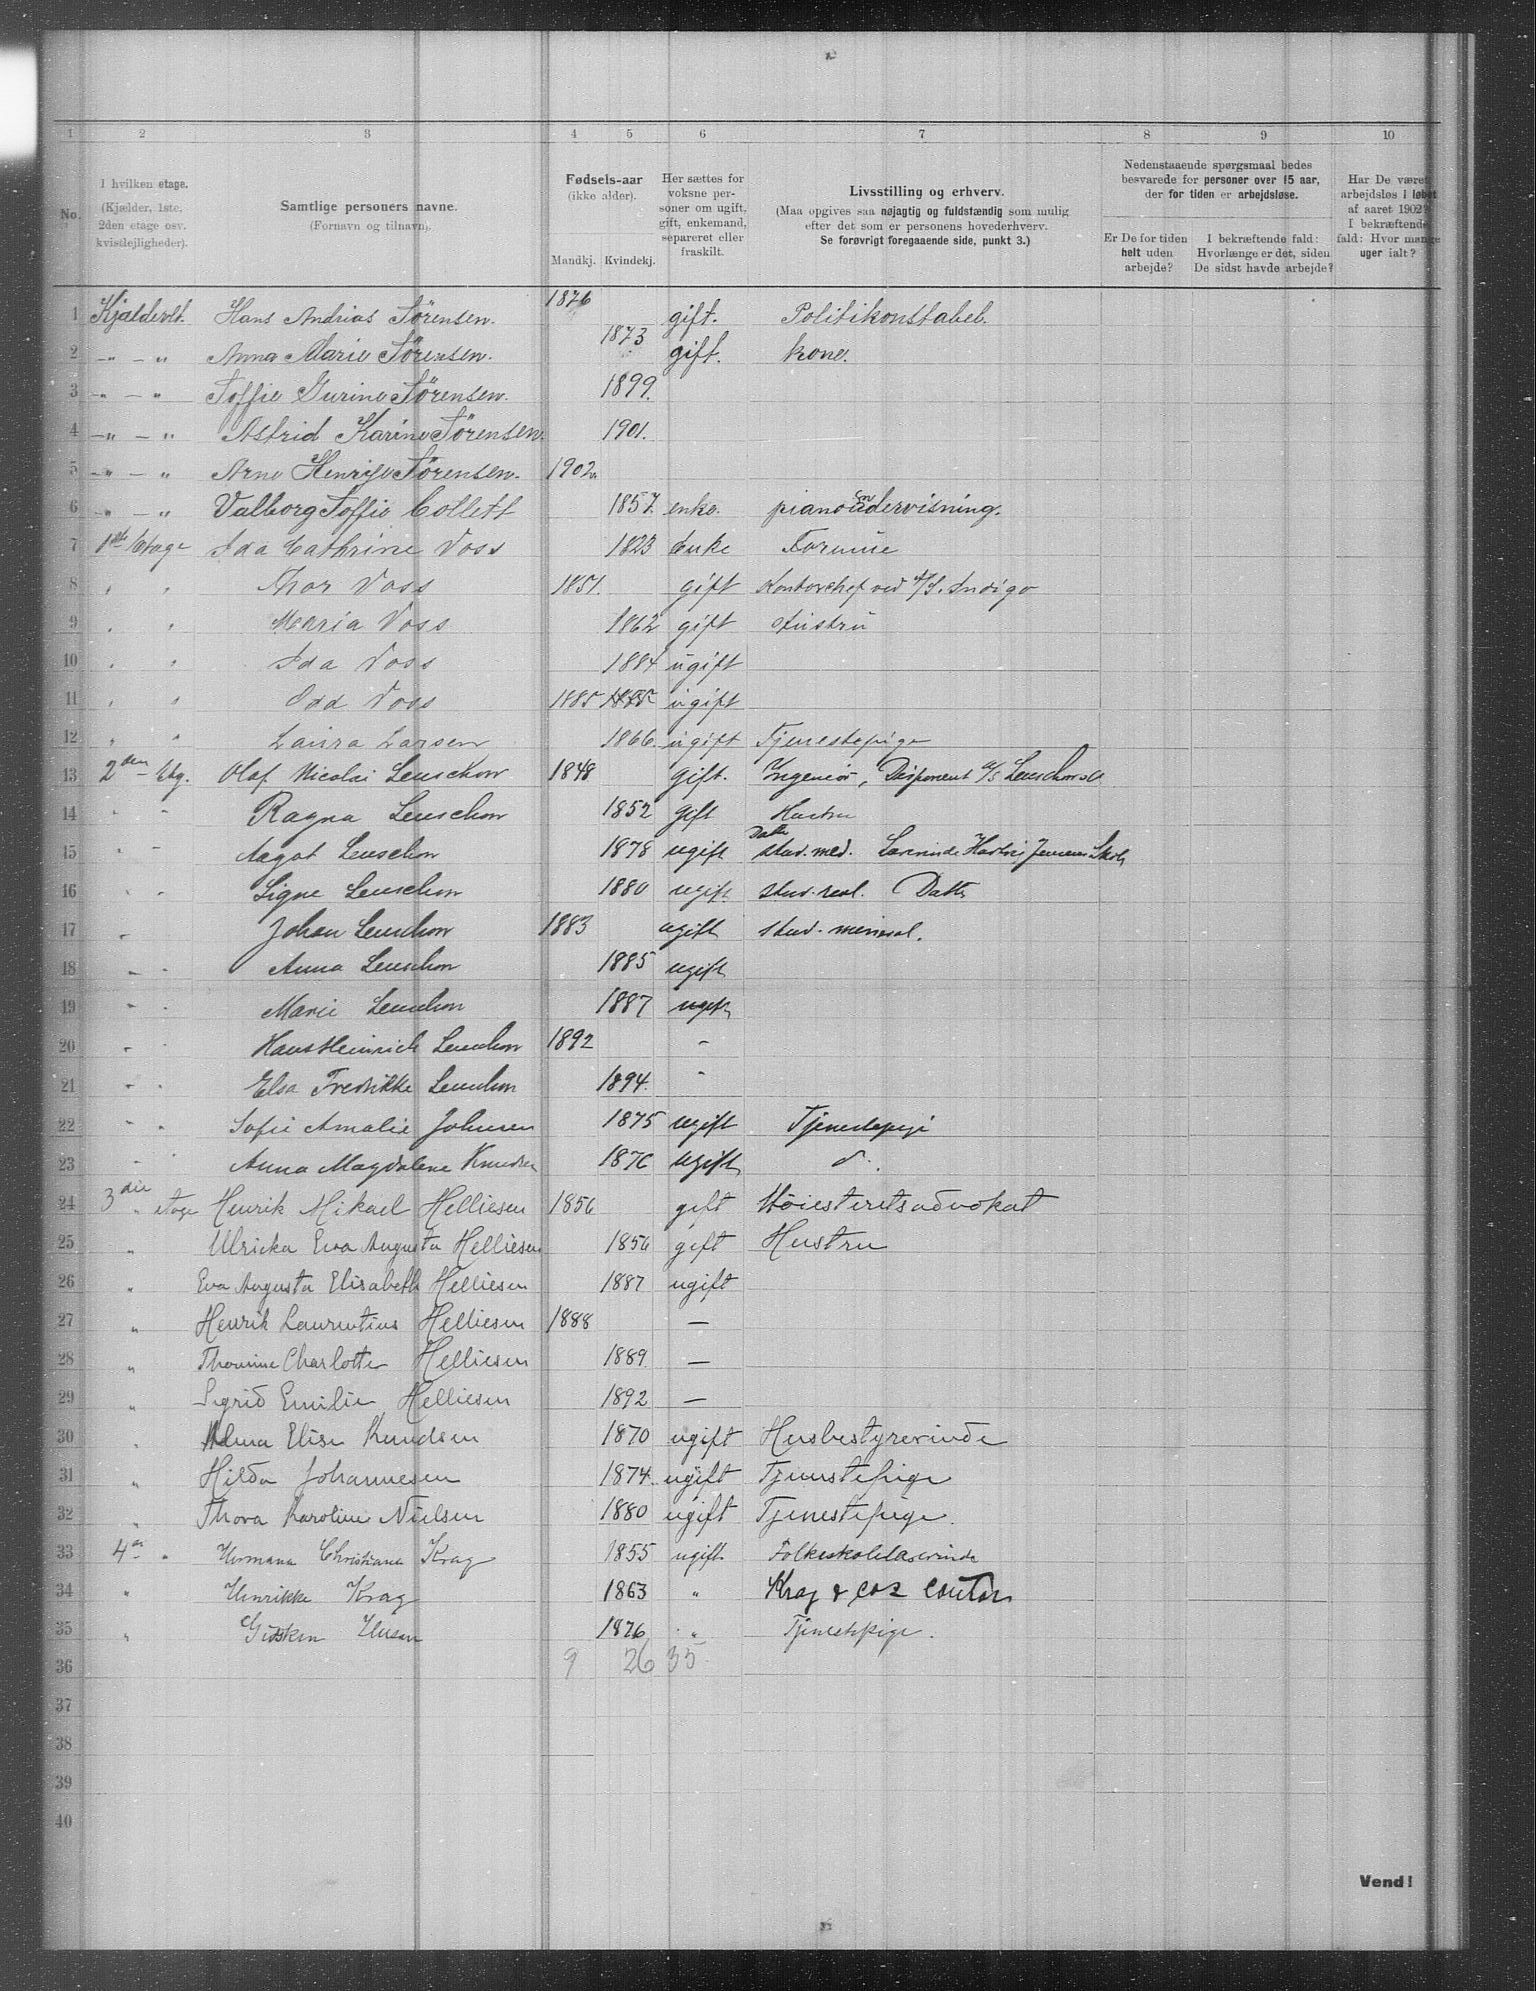 1 2 3 4 5 6 7 8 9 10
No.
I hvilken etage.
(Kjælder, 1ste,
2den etage osv.
kvistlejligheder).
Samtlige personers navne.
(Fornavn og tilnavn).
Fødsels-aar
(ikke alder).
Mandkj. Kvindekj.
Her sættes for
voksne per-
soner om ugift,
gift, enkemand,
separeret eller
fraskilt.
Livsstilling og erhverv.
(Maa opgives saa nøjagtig og fuldstændig som mulig
efter det som er personens hovederhverv.
Se forøvrigt foregaaende side, punkt 3.)
Nedenstaaende spørgsmaal bedes
besvarede for personer over 15 aar,
der for tiden er arbejdsløse.
Er De for tiden
helt uden
arbejde?
I bekræftende fald:
Hvorlænge er det, siden
De sidst havde arbejde?
Har De været
arbejdsløs i løbet
af aaret 1902?
I bekræftende
fald: Hvor mange
uger ialt?
1 Hans Andrias Sørensen. 1876 gift. Politikonstabel.
2 -"- " Anna Marie Sørensen. 1873 gift. kone.
3 -"- " Soffie Gurine Sørensen. 1899.
4 -"- " Astrid Karine Sørensen. 1901.
5 -"- " Arne Henrije Sørensen. 1902
6 -"- " Valborg Soffie Collett 1857. enke. pianoundervisning.
7 1ste Etage Ida Cathrine Voss 1823 Enke Formue
8 " " Thor Voss 1851. gift Kontorchef ved A/S. Indigo
9 " " Maria Voss 1862 gift Hustru
10 " " Ida Voss 1884 ugift
11 " " Odd Voss 1885 1885 ugift
12 " " Laura Larsen 1866. ugift Tjenestepige
13 2den Etg. Olaf Nicolai Leuschow 1848 gift. Ingeniør, Disponent A/S
14 " " Ragna Leuschow 1852 gift Hustru
15 " " Aagot Leuschow 1878 ugift Datter stud. med.
16 " " Signe Leuschow 1880 ugift stud. real. Datter
17 " Johan Leuschow 1883 ugift stud. mineral.
18 " " Anna Leuschow 1885 ugift
19 " " Marie Leuschow 1887 ugift
20 " " Hans Heinrich Leuschow 1892 -
21 " " Elsa Fredrikke Leuschow 1894. -
22 " " Sofie Amalie Johnsen 1875 ugift Tjenestepige
23 " " Anna Magdalene Knudsen 1876 ugift do.
24 3die " etage Henrik Mikael Helliesen 1856 gift Høiesteretsadvokat
25 " Ulricka Eva Augusta Helliesen 1856 gift Hustru
26 " Eva Augusta Elisabeth Helliesen 1887 ugift
27 " Henrik Laurentius Helliesen 1888 —
28 " Thomine Charlotte Helliesen 1889. —
29 " Sigrid Emilie Helliesen 1892 —
30 " Alma Elise Knudsen 1870 ugift Husbestyrerinde
31 " Hilda Johannesen 1874. ugift Tjenestepige
32 " Thora Karoline Nielsen 1880 ugift Tjenestepige.
33 4de " Hermana Christiana Krag 1855 ugift Folkeskolelærerinde
34 " Henrikke Krag 1863 " Krag &
35 " Gidsken 1876 " Tjenestepige.
36 9 26 35
37
38
39
40
Vend!